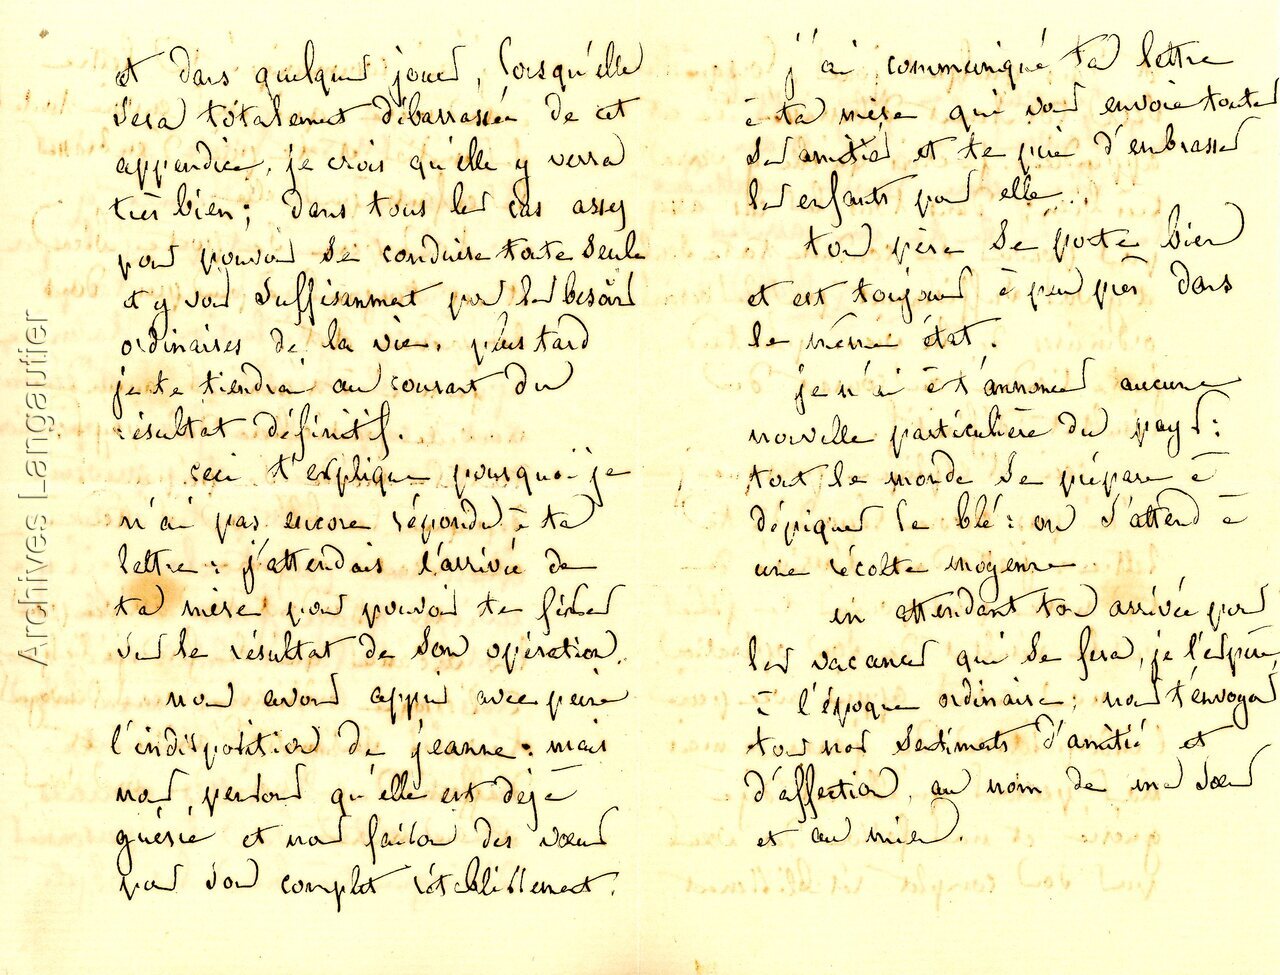 et dans quelques jours, lorsqu'elle
sera totalement débarrassée de cet
appendice, je crois qu'elle y verra
très bien; dans tous les cas assez
pour pouvoir se conduire toute seule
et y voir suffisamment pour les besoins
ordinaires de la vie. plus tard
je te tiendrai au courant du
résultat définitif.
ceci t'explique pourquoi je
n'ai pas encore répondu à ta
lettre: j'attendais l'arrivée de
ta mère pour pouvoir te fixer
sur le résultat de son opération.
nous avons appris avec peine
l'indisposition de jeanne: mais
nous pensons qu'elle est déjà
guérie et nous faisons des vœux
pour son complet rétablissement.
j'ai communiqué ta lettre
à ta mère qui vous envoie toutes
ses amitiés et te prie d'embrasser
les enfants pour elle...
ton père se porte bien
et est toujours à peu près dans
le même état.
je n'ai à t'annoncer aucune
nouvelle particulière du pays:
tout le monde se prépare à
dépiquer le blé: on s'attend à
une récolte moyenne
en attendant ton arrivée pour
les vacances qui se fera, je l'espère,
à l'époque ordinaire; nous t'envoyons
tous nos sentiments d'amitié et
d'affection, au nom de ma sœur
et au mien.
Archives Langautier